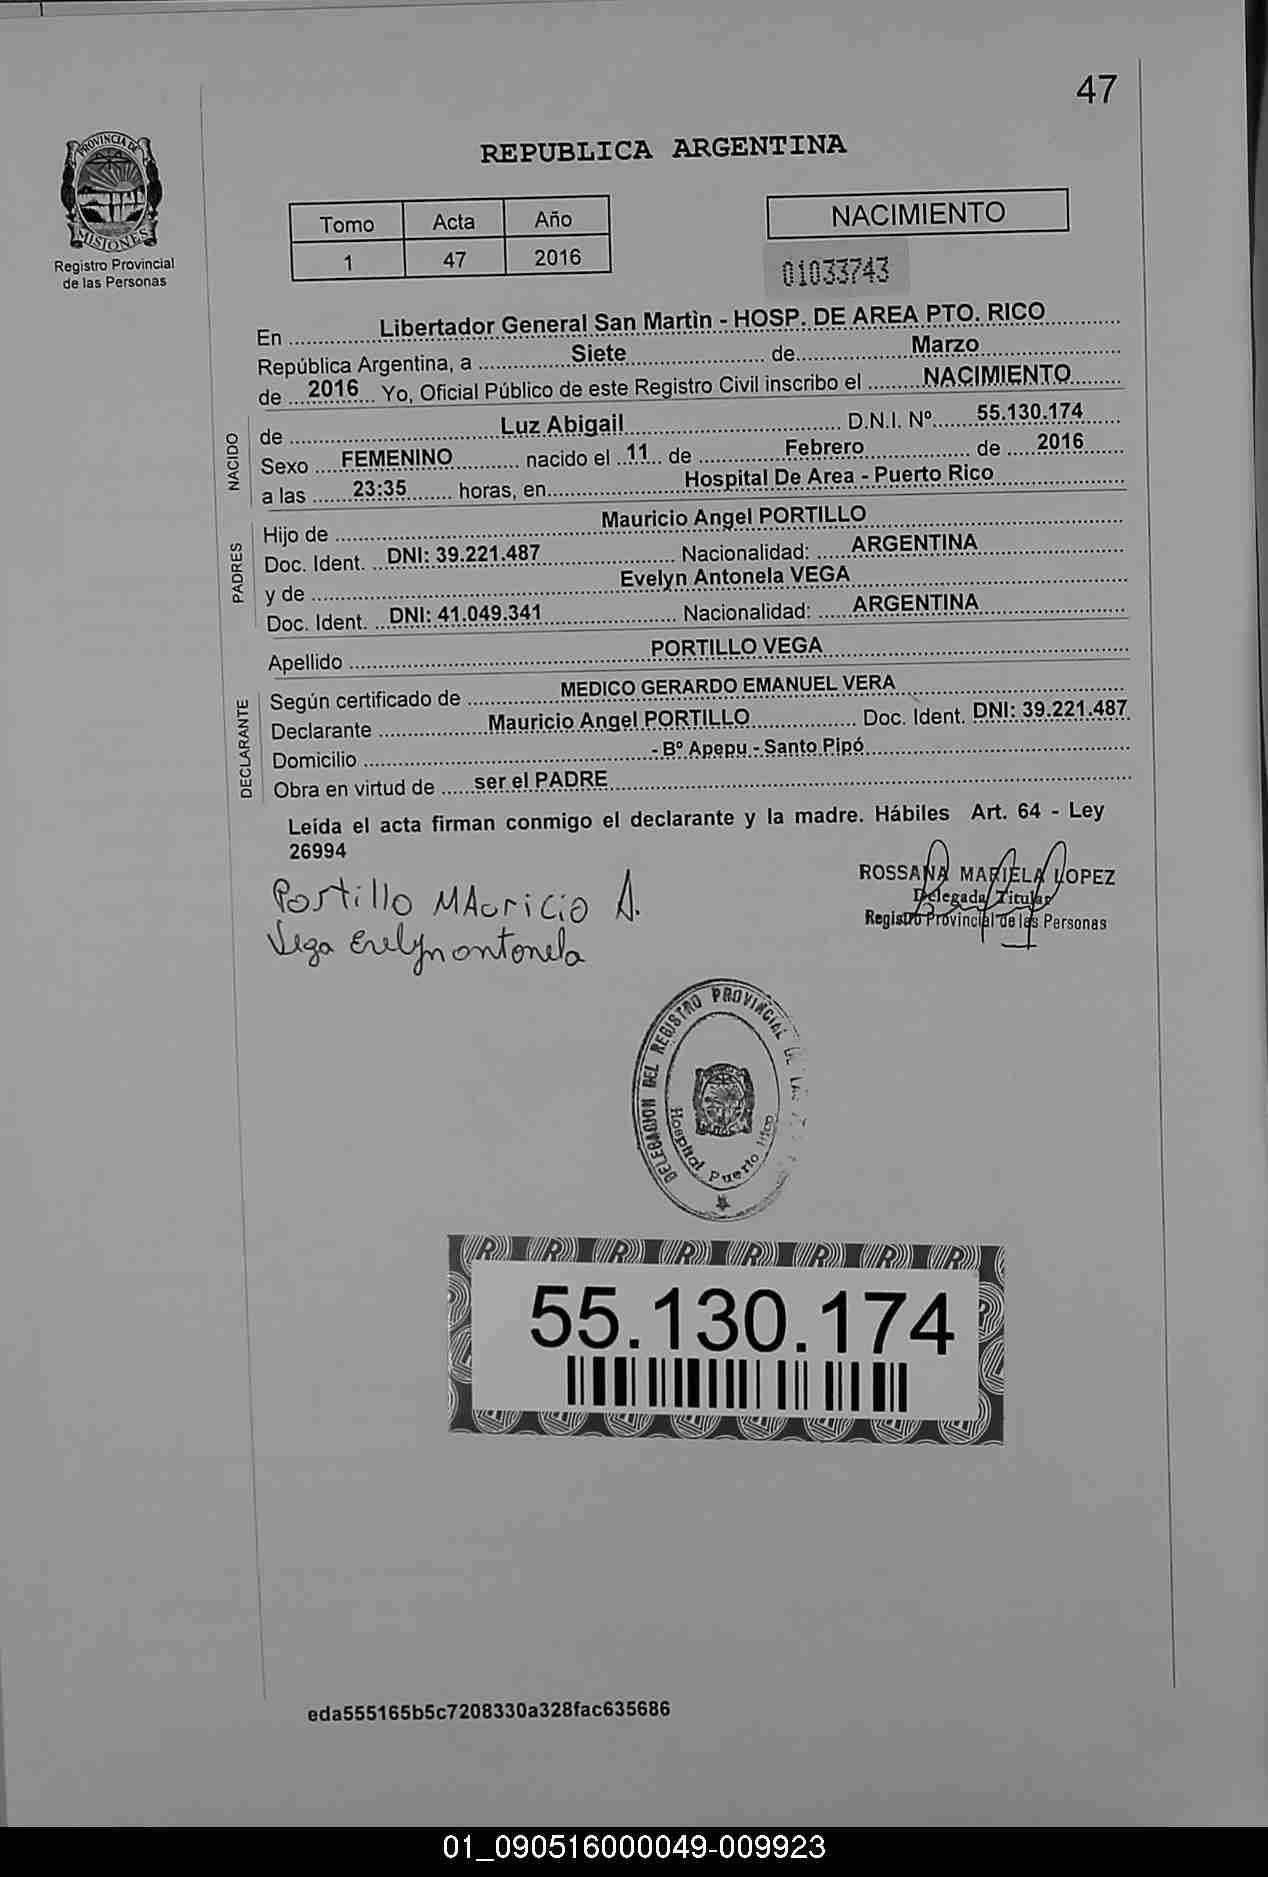 47
PROVINCIA DE
MISIONES
Registro Provincial
de las Personas
REPUBLICA ARGENTINA
Tomo Acta Año
1 47 2016
NACIMIENTO
01033743
En Libertador General San Martìn - HOSP. DE AREA PTO. RICO
República Argentina, a Siete de Marzo
de 2016 Yo, Oficial Público de este Registro Civil inscribo el NACIMIENTO
NACIDO
de Luz Abigail D.N.I. Nº 55.130.174
Sexo FEMENINO nacido el 11 de Febrero de 2016
a las 23:35 horas, en Hospital De Area - Puerto Rico
PADRES
Hijo de Mauricio Angel PORTILLO
Doc. Ident. DNI: 39.221.487 Nacionalidad: ARGENTINA
y de Evelyn Antonela VEGA
Doc. Ident. DNI: 41.049.341 Nacionalidad: ARGENTINA
Apellido PORTILLO VEGA
DECLARANTE
Según certificado de MEDICO GERARDO EMANUEL VERA
Declarante Mauricio Angel PORTILLO Doc. Ident. DNI: 39.221.487
Domicilio - Bº Apepu - Santo Pipó
Obra en virtud de ser el PADRE
Leída el acta firman conmigo el declarante y la madre. Hábiles Art. 64 - Ley
26994
Portillo MAuricio A.
Vega Evelyn antonela
ROSSANA MARIELA LOPEZ
Delegada Titular
Registro Provincial de las Personas
DELEGACION DEL REGISTRO PROVINCIAL DE LAS
Hospital Puerto Rico
55.130.174
eda555165b5c7208330a328fac635686
01_090516000049-009923